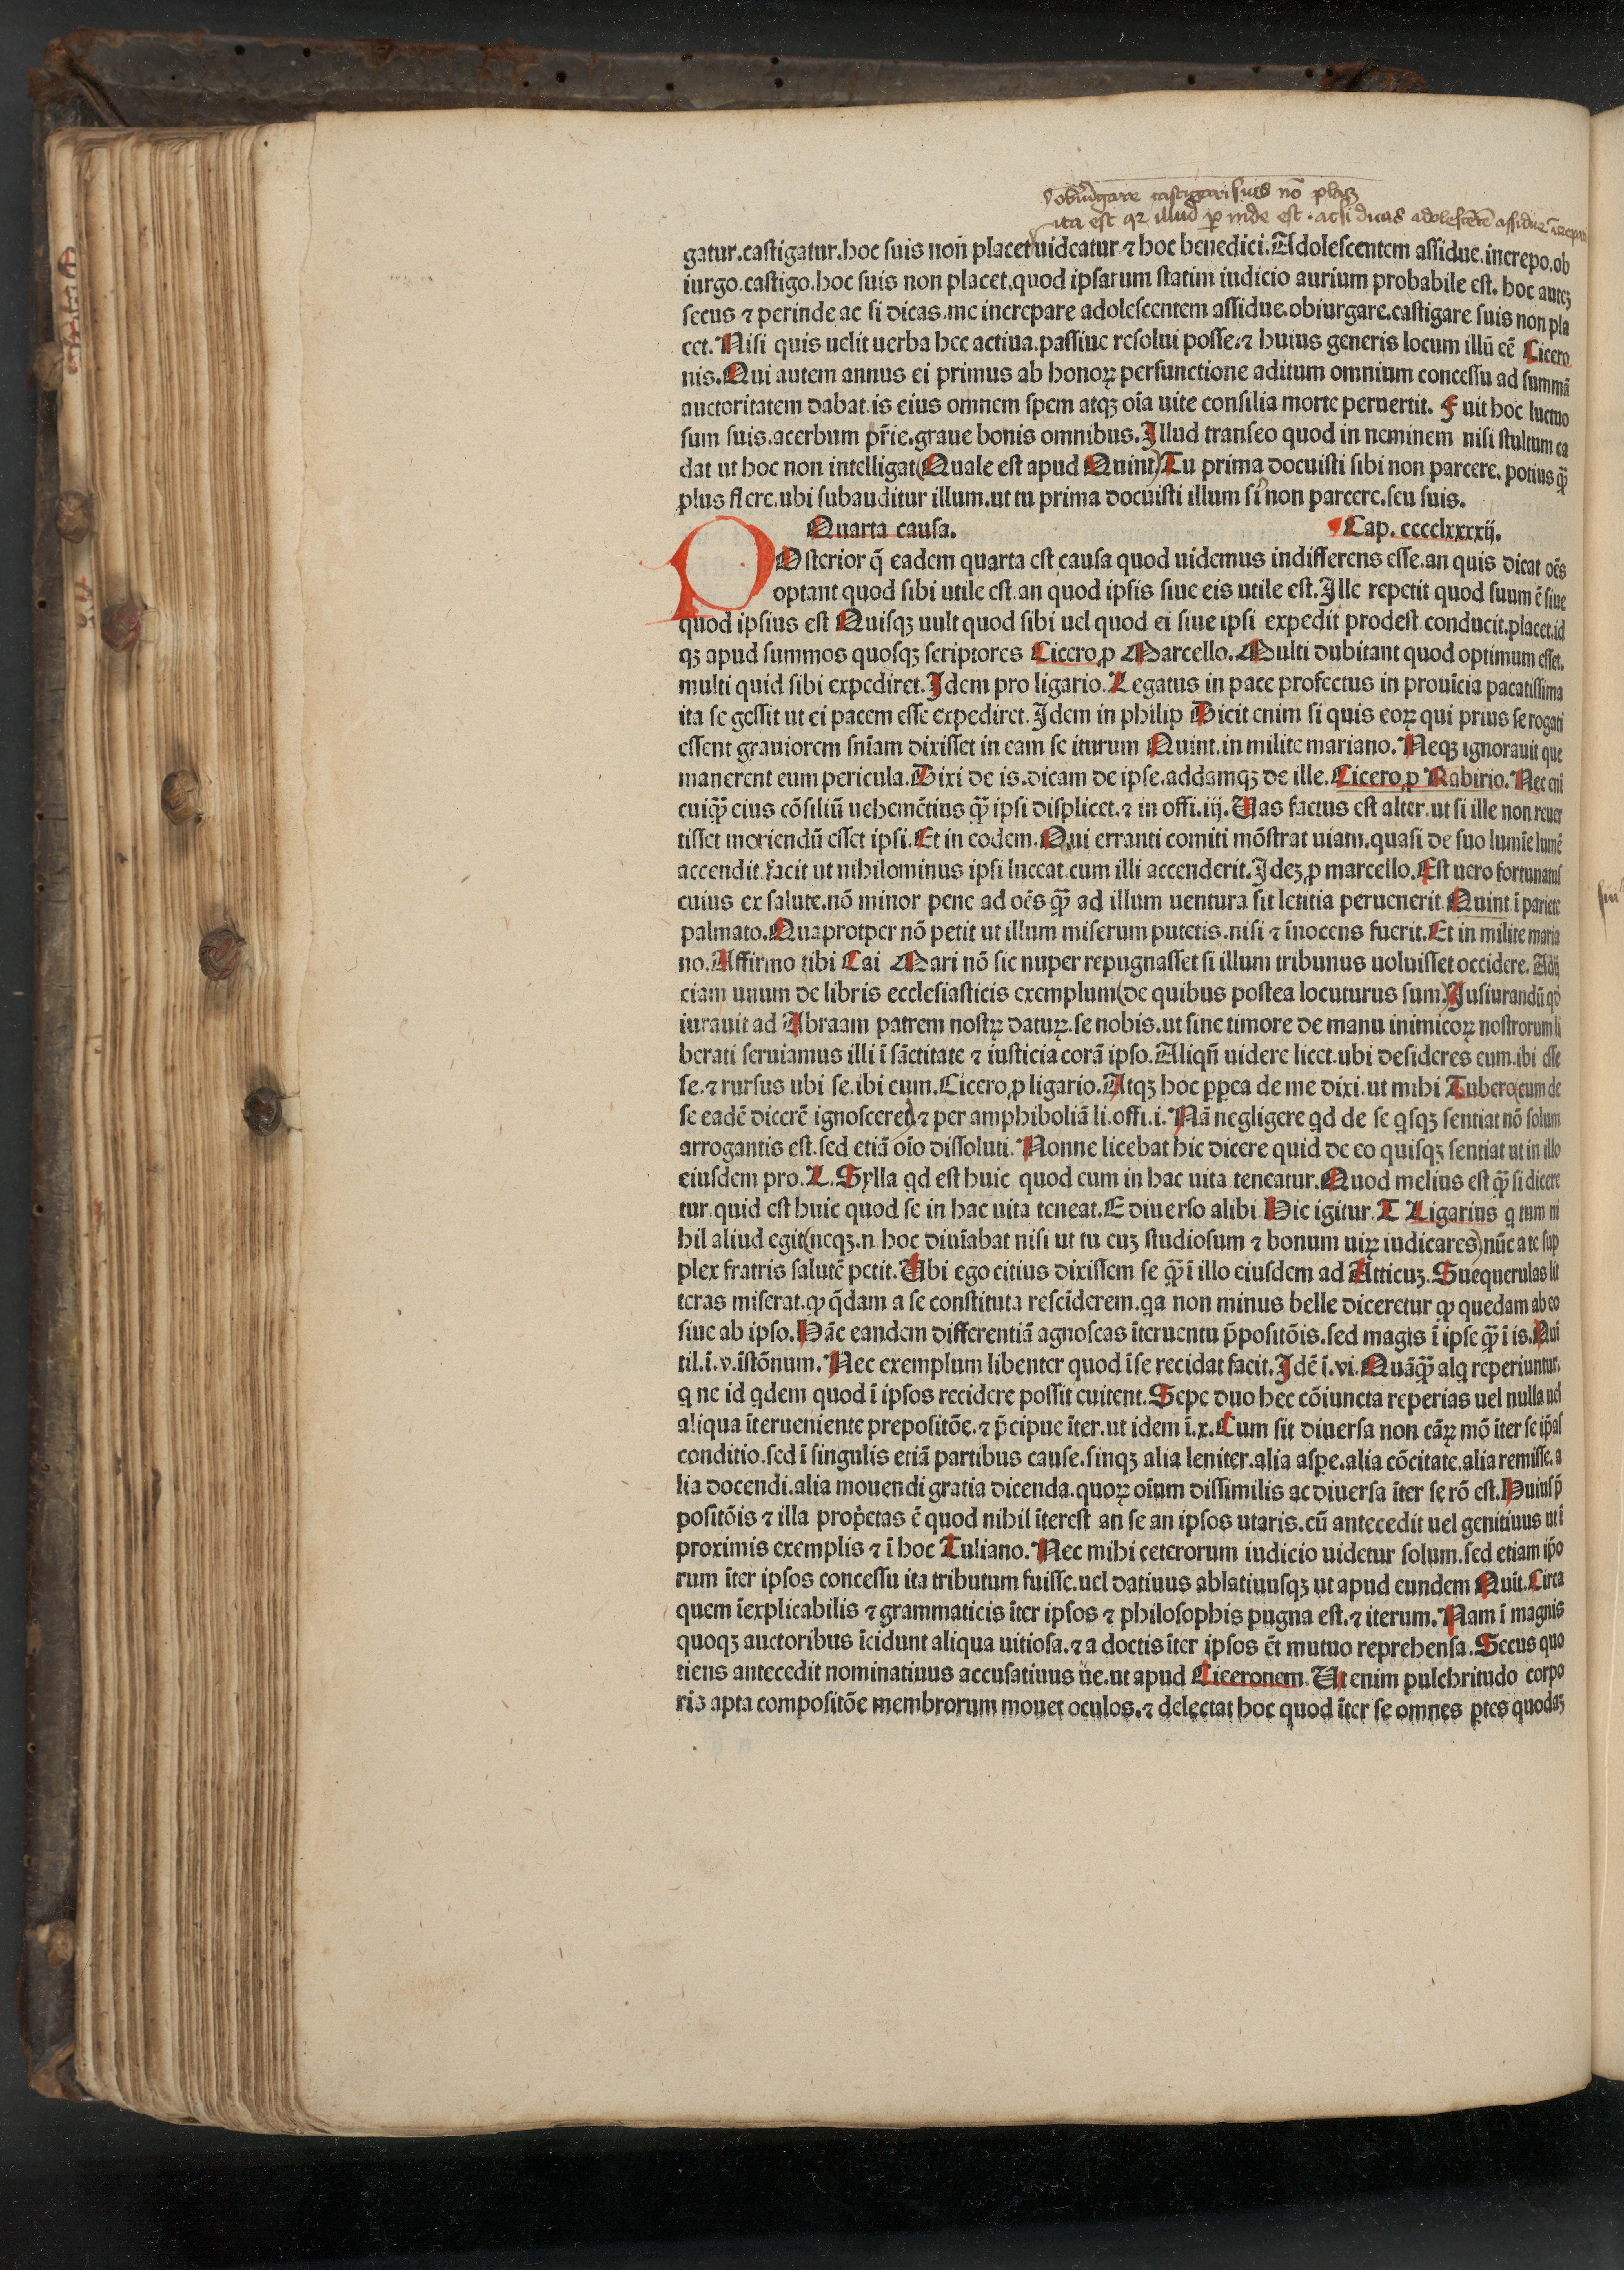 obiurgare castigari suis nō placꝫ
ita est qꝛ illud ꝑ inde est . acsi dicas adolescētē assidue īcrepari
gatur.castigatur.hoc suis non̄ placet uideatur ⁊ hoc benedici.Adolescentem assidue.increpo.ob
iurgo.castigo.hoc suis non placet.quod ipsarum statim iudicio aurium probabile est. hoc auteꝫ
secus ⁊ perinde ac si dicas.me increpare adolescentem assidue.obiurgare.castigare suis non pla
cet.Nisi quis uelit uerba hec actiua.passiue resolui posse.⁊ huius generis locum illū eē Cicero
nis.Qui autem annus ei primus ab honoꝝ perfunctione aditum omnium concessu ad summā
auctoritatem dabat.is eius omnem spem atqꝫ oīa uite consilia morte peruertit. Fuit hoc luctuo
sum suis.acerbum pr̄ie.graue bonis omnibus.Illud transeo quod in neminem nisi stultum ca
dat ut hoc non intelligat(Quale est apud Quint)Tu prima docuisti sibi non parcere. potius qꝫ̄
plus flere.ubi subauditur illum.ut tu prima docuisti illum si non parcere.seu suis.
Quarta causa. Cap. cccclxxxxij.
POsterior q̄ eadem quarta est causa quod uidemus indifferens esse.an quis dicat oēs
optant quod sibi utile est.an quod ipsis siue eis utile est.Ille repetit quod suum ē siue
quod ipsius est Quisqꝫ uult quod sibi uel quod ei siue ipsi expedit prodest.conducit.placet.id
qꝫ apud summos quosqꝫ scriptores Cicero ꝓ Marcello.Multi dubitant quod optimum esset.
multi quid sibi expediret.Idem pro ligario.Legatus in pace profectus in prouīcia pacatissima
ita se gessit ut ei pacem esse expediret.Idem in philip Dicit enim si quis eoꝝ qui prius se rogati
essent grauiorem snīam dixisset in eam se iturum Quint.in milite mariano.Neqꝫ ignorauit que
manerent eum pericula.Dixi de is.dicam de ipse.addamqꝫ de ille.Cicero ꝓ Rabirio.Nec eni
cuiqꝫ̄ eius cōsiliū uehemētius qꝫ̄ ipsi displicet.⁊ in offi.iij.Uas factus est alter.ut si ille non reuer
tisset moriendū esset ipsi.Et in eodem.Qui erranti comiti mōstrat uiam.quasi de suo lumīe lumē
accendit.facit ut nihilominus ipsi luceat.cum illi accenderit.Ideꝫ ꝓ marcello.Est uero fortunatus
cuius ex salute.nō minor pene ad oēs qꝫ̄ ad illum uentura sit letitia peruenerit.Quint ī pariete
palmato.Quaprotper nō petit ut illum miserum putetis.nisi ⁊ īnocens fuerit.Et in milite maria
no.Affirmo tibi Cai Mari nō sic nuper repugnasset si illum tribunus uoluisset occidere. Adij
ciam unum de libris ecclesiasticis exemplum(de quibus postea locuturus sum)Iusiurandū qd̄
iurauit ad Abraam patrem nostꝝ datuꝝ.se nobis.ut sine timore de manu inimicoꝝ nostrorum li
berati seruiamus illi ī sāctitate ⁊ iusticia corā ipso.Aliqn̄ uidere licet.ubi desideres eum.ibi esse
se.⁊ rursus ubi se.ibi eum.Cicero ꝓ ligario.Atqꝫ hoc ꝓpea de me dixi.ut mihi Tubero(cum de
se eadē dicerē ignosceret)⁊ per amphiboliā li.offi.i.Nā negligere qd de se qsqꝫ sentiat nō solum
arrogantis est.sed etiā oīo dissoluti.Nonne licebat hic dicere quid de eo quisqꝫ sentiat ut in illo
eiusdem pro.L.Sylla qd est huic quod eum in hac uita teneatur.Quod melius est qꝫ̄ si dicere
tur.quid est huic quod se in hac uita teneat.E diuerso alibi Hic igitur.T Ligarius q tum ni
hil aliud egit(neqꝫ.n.hoc diuīabat nisi ut tu euꝫ studiosum ⁊ bonum uiꝝ iudicares)nūc a te sup
plex fratris salutē petit.Ubi ego citius dixissem se qꝫ̄ ī illo eiusdem ad Atticuꝫ.Suequerulas lit
teras miserat.ꝙ q̄dam a se constituta rescīderem.qa non minus belle diceretur ꝙ quedam ab eo
siue ab ipso.Hāc eandem differentiā agnoscas īteruentu p̄positōis.sed magis ī ipse qꝫ̄ ī is.Qui
til.ī.v.īstōnum.Nec exemplum libenter quod īse recidat facit.Idē ī.vi.Quāqꝫ̄ alq reperiuntur.
q ne id qdem quod ī ipsos recidere possit euitent.Sepe duo hec cōiuncta reperias uel nulla uel
aliqua īterueniente prepositōe.⁊ p̄cipue īter.ut idem ī.x.Cum sit diuersa non cāꝝ mō īter se ip̄as
conditio.sed ī singulis etiā partibus cause.sinqꝫ alia leniter.alia aspe.alia cōcitate.alia remisse.a
lia docendi.alia mouendi gratia dicenda.quoꝝ oīum dissimilis ac diuersa īter se rō est.Huius p̄
positōis ⁊ illa prop̄etas ē quod nihil īterest an se an ipsos utaris.cū antecedit uel genitiuus uti
proximis exemplis ⁊ ī hoc Tuliano.Nec mihi ceterorum iudicio uidetur solum.sed etiam ip̄o
rum īter ipsos concessu ita tributum fuisse.uel datiuus ablatiuusqꝫ ut apud eundem Quīt.Circa
quem īexplicabilis ⁊ grammaticis īter ipsos ⁊ philosophis pugna est.⁊ iterum.Nam ī magnis
quoqꝫ auctoribus īcidunt aliqua uitiosa.⁊ a doctis īter ipsos ēt mutuo reprehensa.Secus quo
tiens antecedit nominatiuus accusatiuus ue.ut apud Ciceronem.Ut enim pulchritudo corpo
ris apta compositōe membrorum mouet oculos.⁊ delectat hoc quod īter se omnes ꝑtes quodaꝫ